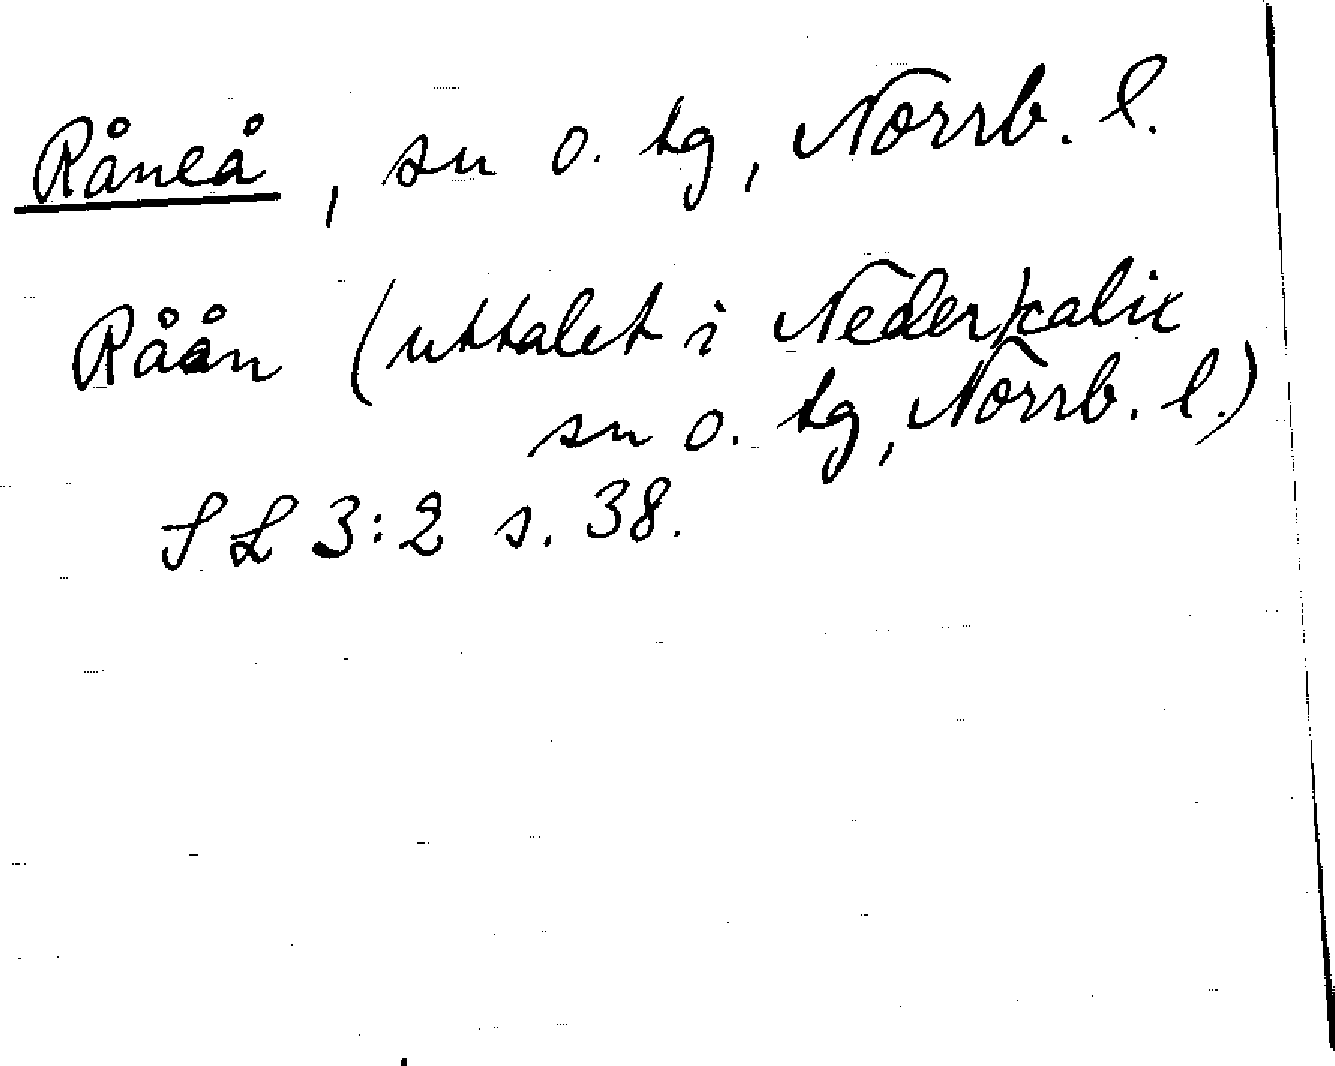 Råneå, sn o. tg, Norrb. l.
Råån (uttalet i Neder/calix
sn o. tg, Norrb. l.)
SL 3:2 s. 38.